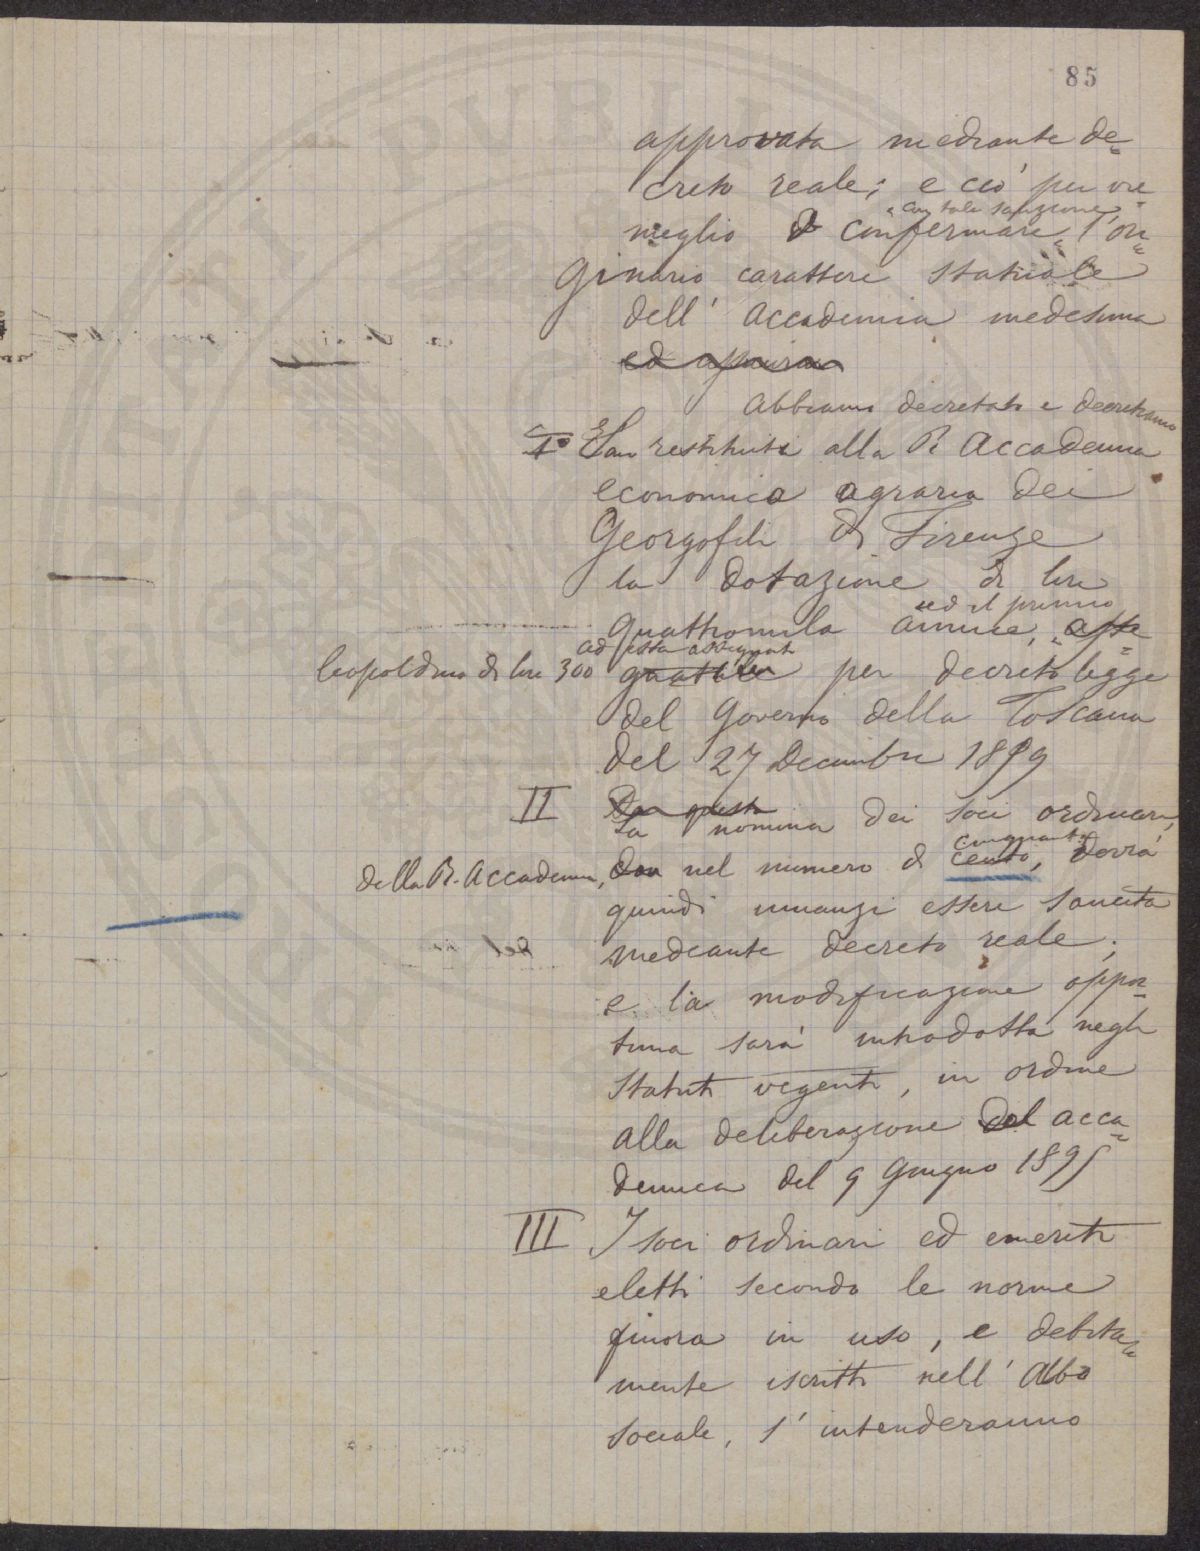 85
approvata mediante de=
creto reale; e ciò per vie=
meglio confermare "con tale sanzione" l'ori=
ginario carattere statuale
dell'Accademia medesima
ed
Abbiamo decretato e decretiamo
I° restituita alla R Accademia
economico agraria dei
Georgofili di Firenze
la dotazione di lire
quattromila annue, ed il premio
leopoldino di lire 300 ad essa assegnati per decreto legge
del Governo della Toscana
del 27 Decembre 1859
II Da questo
La nomina dei soci ordinari
della R. Accademia, nel numero di cento, cinquanta, dovrà
quindi innanzi essere sancita
mediante decreto reale;
e la modificazione oppor=
tuna sarà introdotta negli
Statuti vigenti, in ordine
alla deliberazione del acca=
demica del 9 Giugno 1895
III I soci ordinari ed emeriti
eletti secondo le norme
finora in uso, e debita=
mente iscritti nell'Albo
sociale, s'intenderanno